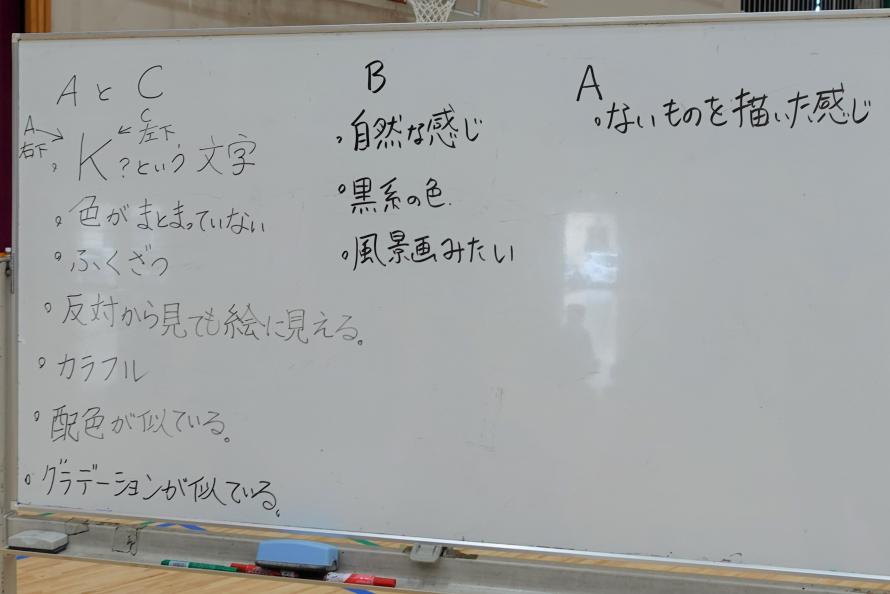 AとC
A
右下
C
左下
。K?という文字
。色がまとまっていない
。ふくざつ
。反対から見ても絵に見える。
。カラフル
。配色が似ている。
。グラデーションが似ている。
B
。自然な感じ
。黒系の色.
。風景画みたい
A
。ないものを描いた感じ